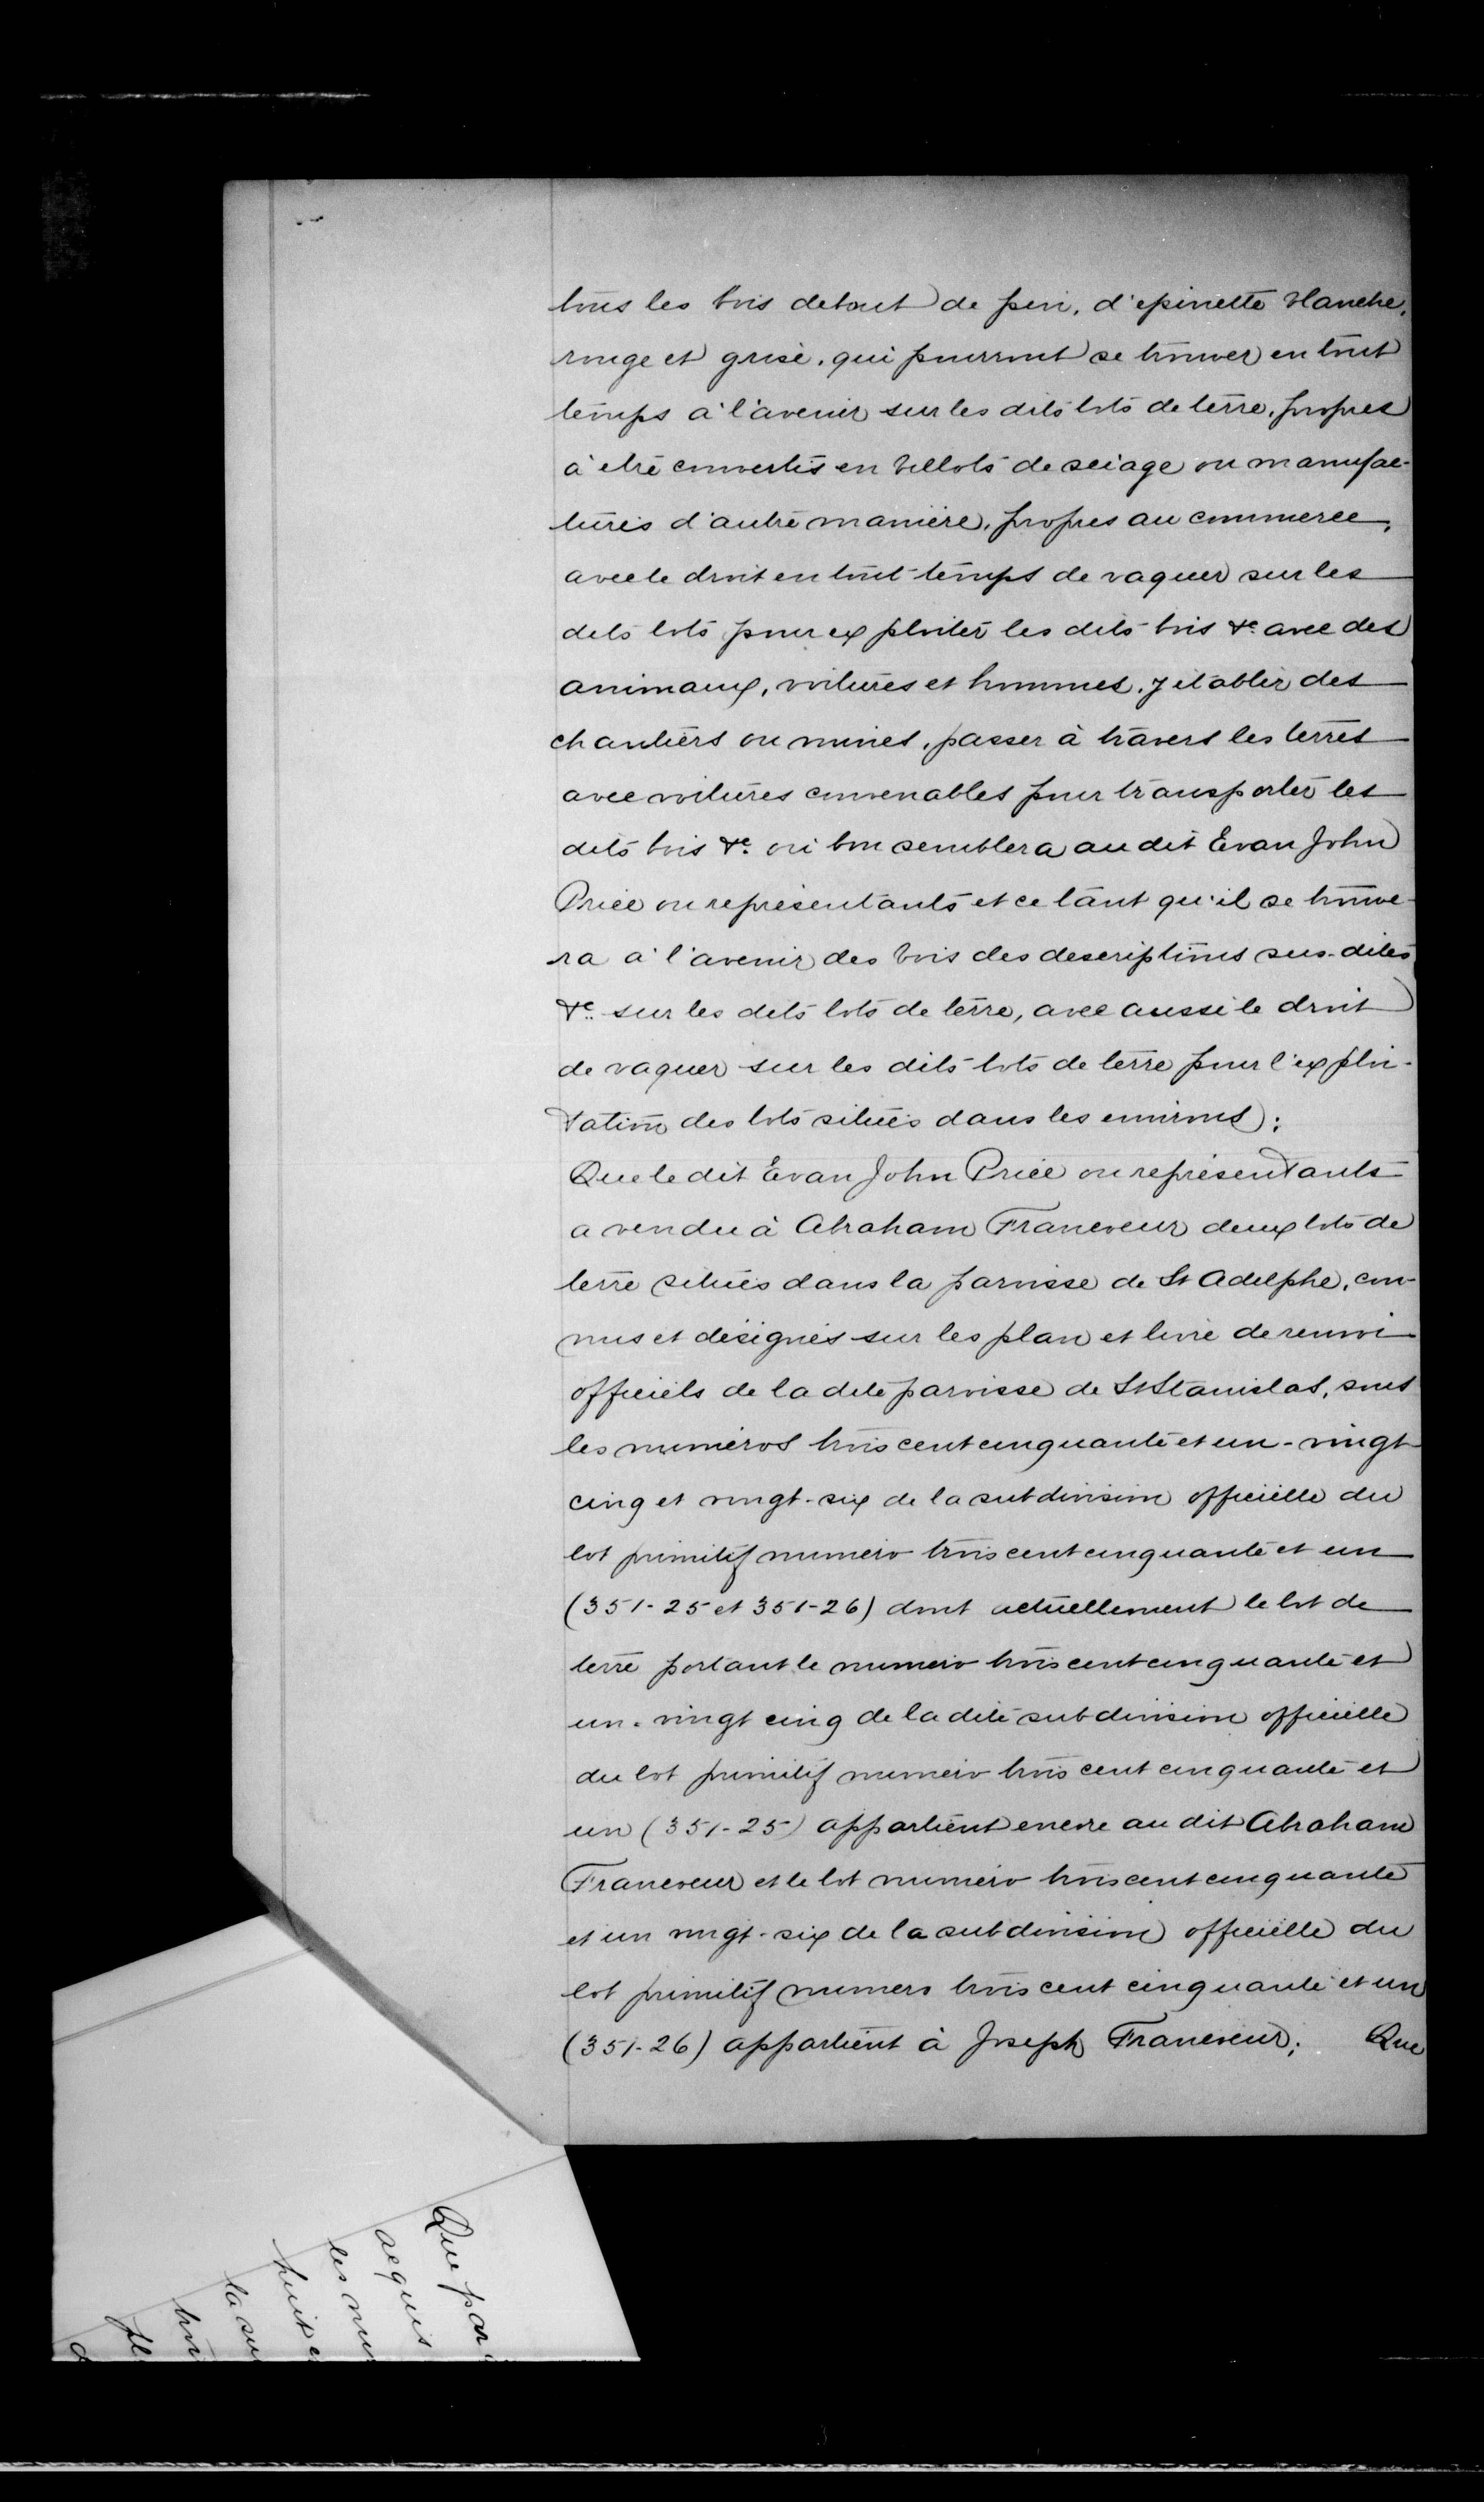 tous les bois debout de pin, d'epinette blanche,
rouge et grise, qui pourront se trouver en tout
temps à l'avenir sur les dits lots de terre, propres
à être convertis en billots de sciage ou manufac-
turés d'autre manière, propres au commerce,
avec le droit en tout temps de vaquer sur les
dits lots pour exploiter les dits bois &c. avec des
animaux, voitures et hommes, y établir des
chantiers ou mines, passer à travers les terres
avec voitures convenables pour transporter les
dits bois &c. où bon semblera au dit Evan John
Price ou représentants et ce tant qu'il se trouve-
ra à l'avenir des bois des descriptions sus-dites
&c. sur les dits lots de terre, avec aussi le droit
de vaquer sur les dits lots de terre pour l'exploi-
tation des lots situés dans les environs;
Que le dit Evan John Price ou représentants
a vendu à Abraham Francoeur deux lots de
terre situés dans la paroisse de St Adelphe, con-
nus et désignés sur les plan et livre de renvoi
officiels de la dite paroisse de St Stanislas, sous
les numéros trois cent cinquante et un - vingt
cinq et vingt-six de la subdivision officielle du
lot primitif numéro trois cent cinquante et un
(351-25 et 351-26) dont actuellement le lot de
terre portant le numéro trois cent cinquante et
un - vingt cinq de la dite subdivision officielle
du lot primitif numéro trois cent cinquante et
un (351-25) appartient encore au dit Abraham
Francoeur et le lot numéro trois cent cinquante
et un vingt-six de la subdivision officielle du
lot primitif numero trois cent cinquante et un
(351-26) appartient à Joseph Francoeur; Que
Que par
acquis
les nu
huit c
la su
troi